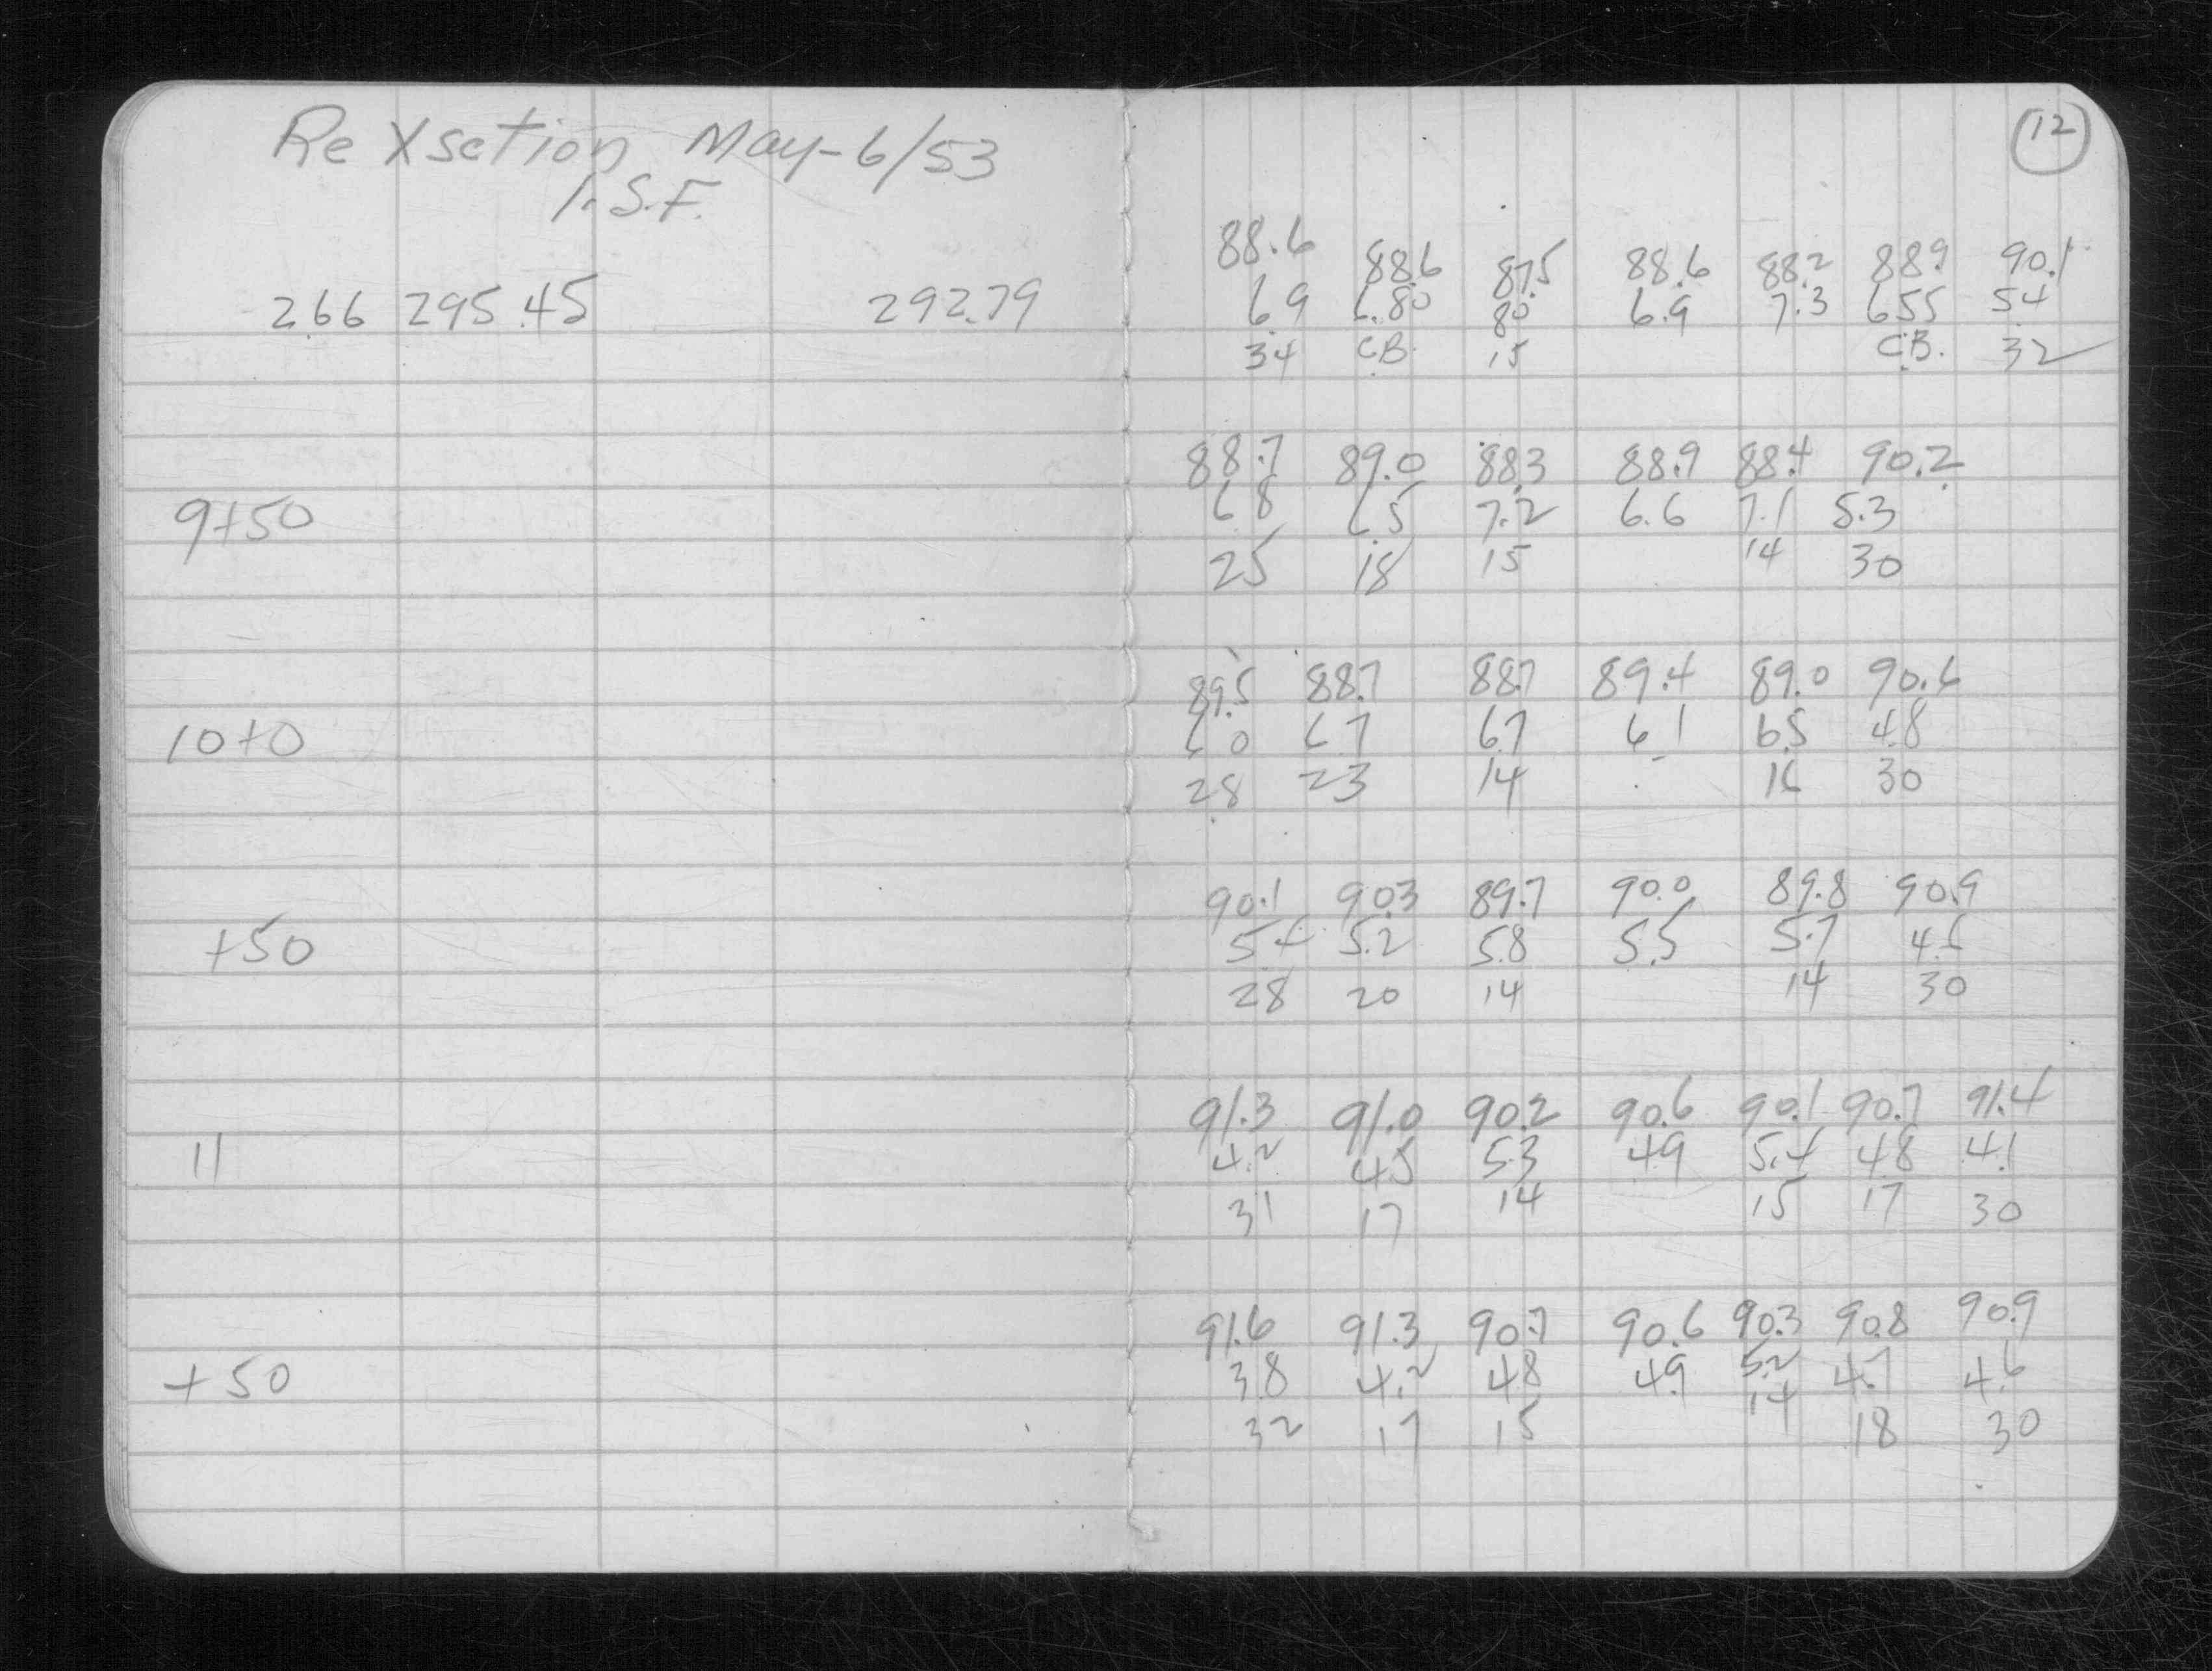 Re Xsction May-6/53
I.S.F.
12
88.6 88.6 87.5 88.6 88.2 88.9 90.1
2.66 295.45 292.79 6.9 6.80 8.0 6.9 7.3 6.55 5.4
34 C.B. 15 C.B. 32
88.7 89.0 88.3 88.9 88.4 90.2
9+50 6.8 6.5 7.2 6.6 7.1 5.3
25 18 15 14 30
89.5 88.7 88.7 89.4 89.0 90.6
10+0 6.0 6.7 6.7 6.1 6.5 4.8
28 23 14 16 30
90.1 90.3 89.7 90.0 89.8 90.9
+50 5.4 5.2 5.8 5.5 5.7 4.5
28 20 14 14 30
91.3 91.0 90.2 90.6 90.1 90.7 91.4
11 4.2 4.5 5.3 4.9 5.4 4.8 4.1
31 17 14 15 17 30
91.6 91.3 90.7 90.6 90.3 90.8 90.9
+50 3.8 4.2 4.8 4.9 5.2 4.7 4.6
32 17 15 14 18 30